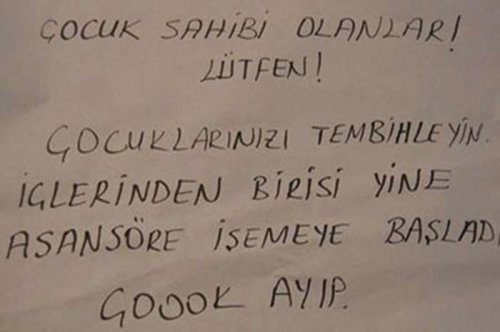 ÇOCUK SAHİBİ OLANLAR!
LÜTFEN!
ÇOCUKLARINIZI TEMBİHLEYİN.
İÇLERİNDEN BİRİSİ YİNE
ASANSÖRE İŞEMEYE BAŞLADI.
ÇOOOK AYIP.